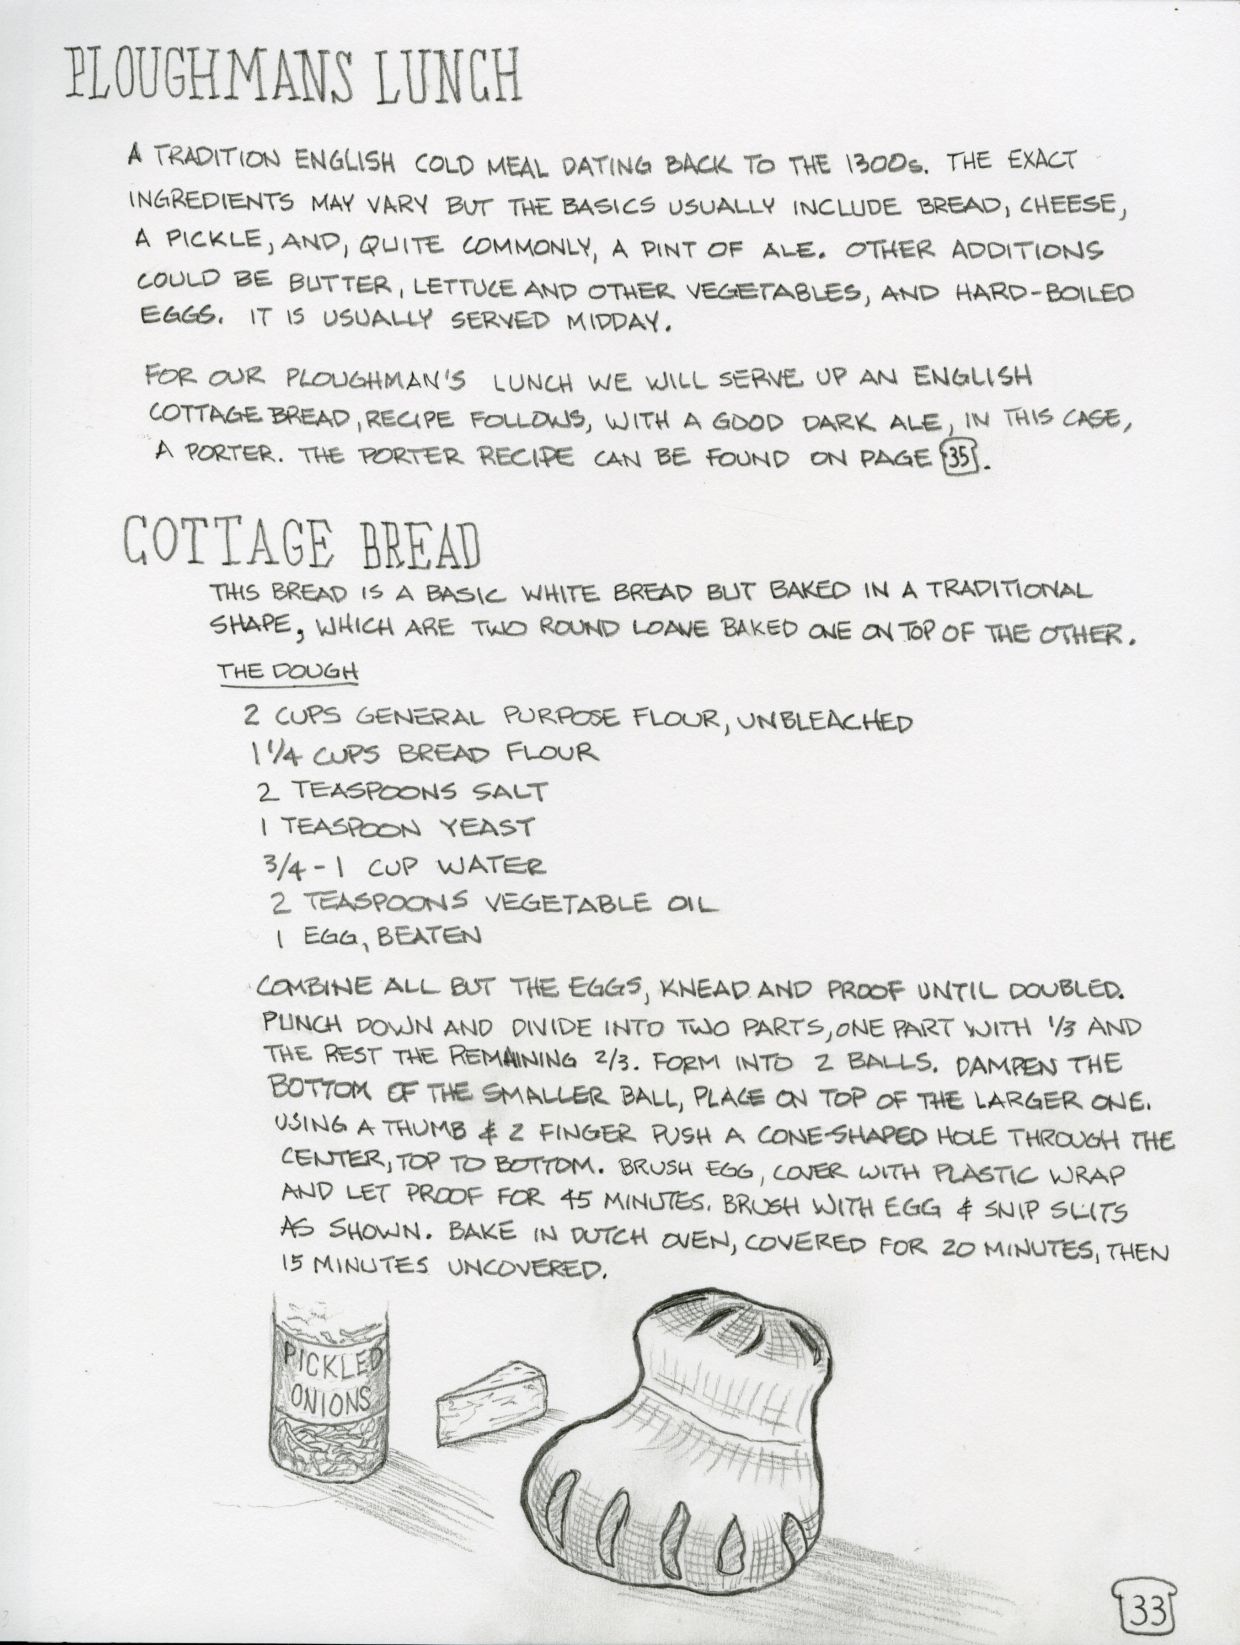 PLOUGHMANS LUNCH
A TRADITION ENGLISH COLD MEAL DATING BACK TO THE 1300s. THE EXACT
INGREDIENTS MAY VARY BUT THE BASICS USUALLY INCLUDE BREAD, CHEESE,
A PICKLE, AND, QUITE COMMONLY, A PINT OF ALE. OTHER ADDITIONS
COULD BE BUTTER, LETTUCE AND OTHER VEGETABLES, AND HARD-BOILED
EGGS. IT IS USUALLY SERVED MIDDAY.
FOR OUR PLOUGHMAN'S LUNCH WE WILL SERVE UP AN ENGLISH
COTTAGE BREAD, RECIPE FOLLOWS, WITH A GOOD DARK ALE, IN THIS CASE,
A PORTER. THE PORTER RECIPE CAN BE FOUND ON PAGE 35.
COTTAGE BREAD
THIS BREAD IS A BASIC WHITE BREAD BUT BAKED IN A TRADITIONAL
SHAPE, WHICH ARE TWO ROUND LOAVE BAKED ONE ON TOP OF THE OTHER.
THE DOUGH
2 CUPS GENERAL PURPOSE FLOUR, UNBLEACHED
1 1/4 CUPS BREAD FLOUR
2 TEASPOONS SALT
1 TEASPOON YEAST
3/4 - 1 CUP WATER
2 TEASPOONS VEGETABLE OIL
1 EGG, BEATEN
COMBINE ALL BUT THE EGGS, KNEAD AND PROOF UNTIL DOUBLED.
PUNCH DOWN AND DIVIDE INTO TWO PARTS, ONE PART WITH 1/3 AND
THE REST THE REMAINING 2/3. FORM INTO 2 BALLS. DAMPEN THE
BOTTOM OF THE SMALLER BALL, PLACE ON TOP OF THE LARGER ONE.
USING A THUMB & 2 FINGER PUSH A CONE-SHAPED HOLE THROUGH THE
CENTER, TOP TO BOTTOM. BRUSH EGG, COVER WITH PLASTIC WRAP
AND LET PROOF FOR 45 MINUTES. BRUSH WITH EGG & SNIP SLITS
AS SHOWN. BAKE IN DUTCH OVEN, COVERED FOR 20 MINUTES, THEN
15 MINUTES UNCOVERED.
PICKLED
ONIONS
33